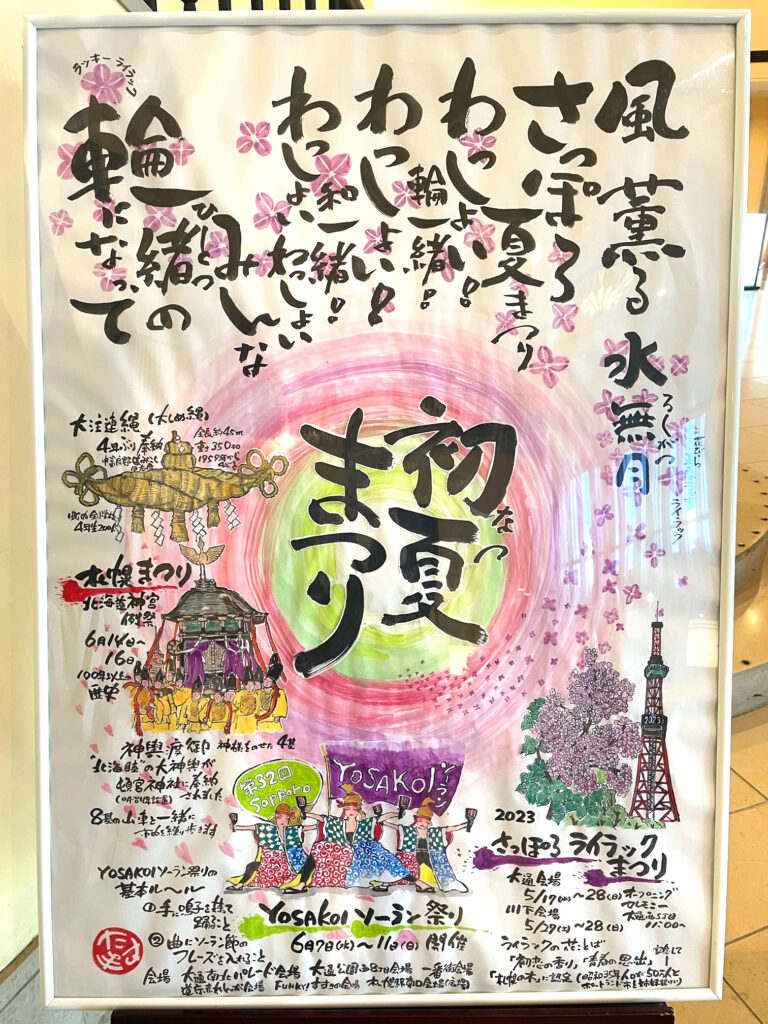 風薫る水無月
るしがつ
ライラック
さっぽろ
夏まつり
わっしょい!!
輪一緒!!
わっしょい!!
和一緒!!
わっしょいわっしょい
みんな
ひとつ
一緒の
輪になって
ラッキーライラック
初夏
なつ
まつり
大注連縄(大しめ縄)
4年ぶり奉納
全長約45m
重さ350キロ
1959年から
札幌まつり
北海道神宮
例祭
6月14日〜
16日
100年以上の
歴史
神輿渡御 神様をのせた4基
"北海陸"の大神輿が
頓宮神社に奉納
されました
8基の山車と一緒に
市内を練り歩きます
第32回
Sapporo
YOSAKOIソーラン
YOSAKOIソーラン祭り
6月7日(水)〜11日(日)開催
YOSAKOIソーラン祭りの
基本ルール
①手に鳴子を持って
踊ること
②曲にソーラン節の
フレーズを入れること
会場 大通南北パレード会場 大通公園西8丁目会場 一番街会場
道庁赤れんが会場 FUNKY!すすきの会場 札幌駅南口会場(広場)
2023
2023
さっぽろライラック
まつり
大通会場
5/17(水)〜28(日)オープニング
セレモニー
大通西5丁目
11:00〜
川下会場
5/27(土)〜28(日)
ライラックの花ことば
「初恋の香り」「青春の思い出」
「札幌の木」に認定(昭和35年人口が50万人と